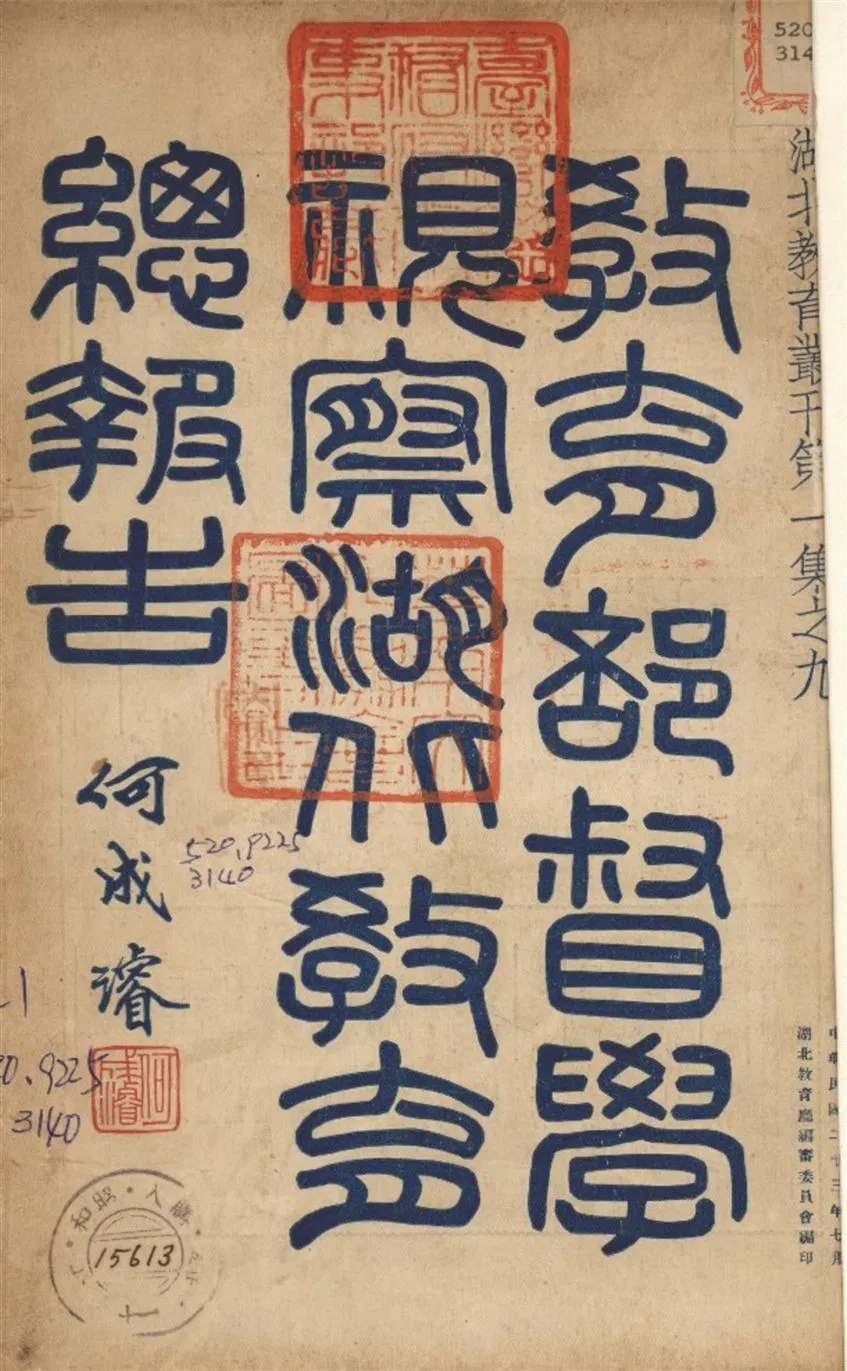 520
314
湖北教育叢刊第一集之九
教育部督學
視察湖北教育
總報告
何成濬
何成濬
520.9225
3140
-1
0.9225
3140
中華民國二十三年七月
湖北教育廳編審委員會編印
昭和
購入
15613